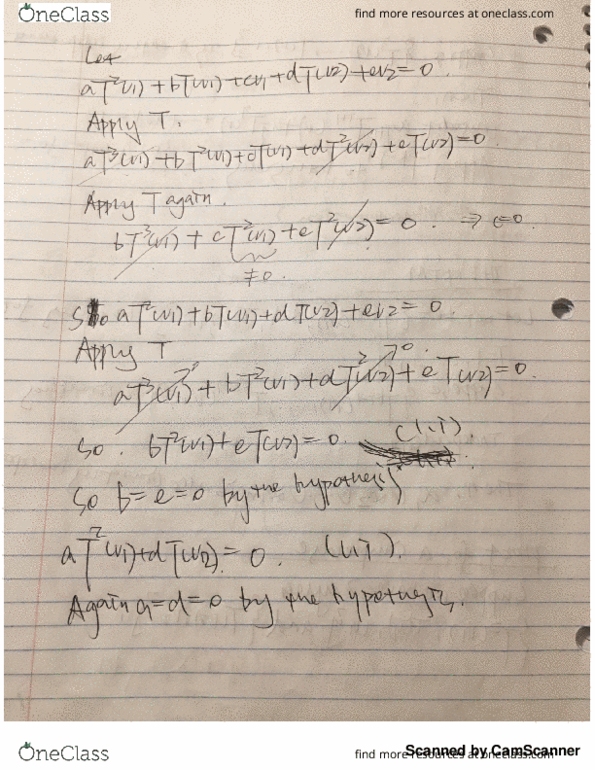 OneClass
find more resources at oneclass.com
Let
aT²(v1)+bT(v1)+cv1+dT(v2)+ev2=0.
Apply T.
aT³(v1)+bT²(v1)+cT(v1)+dT²(v2)+eT(v2)=0
Apply T again.
bT³(v1)+cT²(v1)+eT²(v2)=0. ⇒ c=0.
≠0.
So aT²(v1)+bT(v1)+dT(v2)+ev2=0.
Apply T
aT³(v1)+bT²(v1)+dT²(v2)→0+eT(v2)=0.
So. bT²(v1)+eT(v2)=0. (L.I)
So b=e=0 by the hypothesis
aT²(v1)+dT(v2)=0. (L.I).
Again a=d=0 by the hypothesis.
OneClass
find more resources at oneclass.com
Scanned by CamScanner